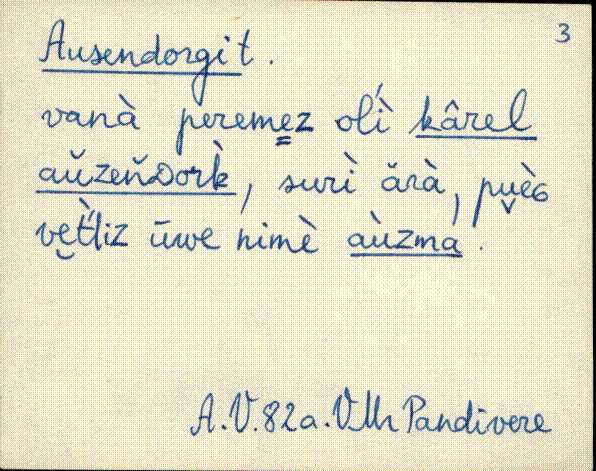 3
Ausendorgit.
vanà peremez olì kârel
aŭzeňDork̀, surì ărà, pu̬èG
ve̬t̀liz ūwe nimè aùzma.
A.V.82a. VMr Pandivere